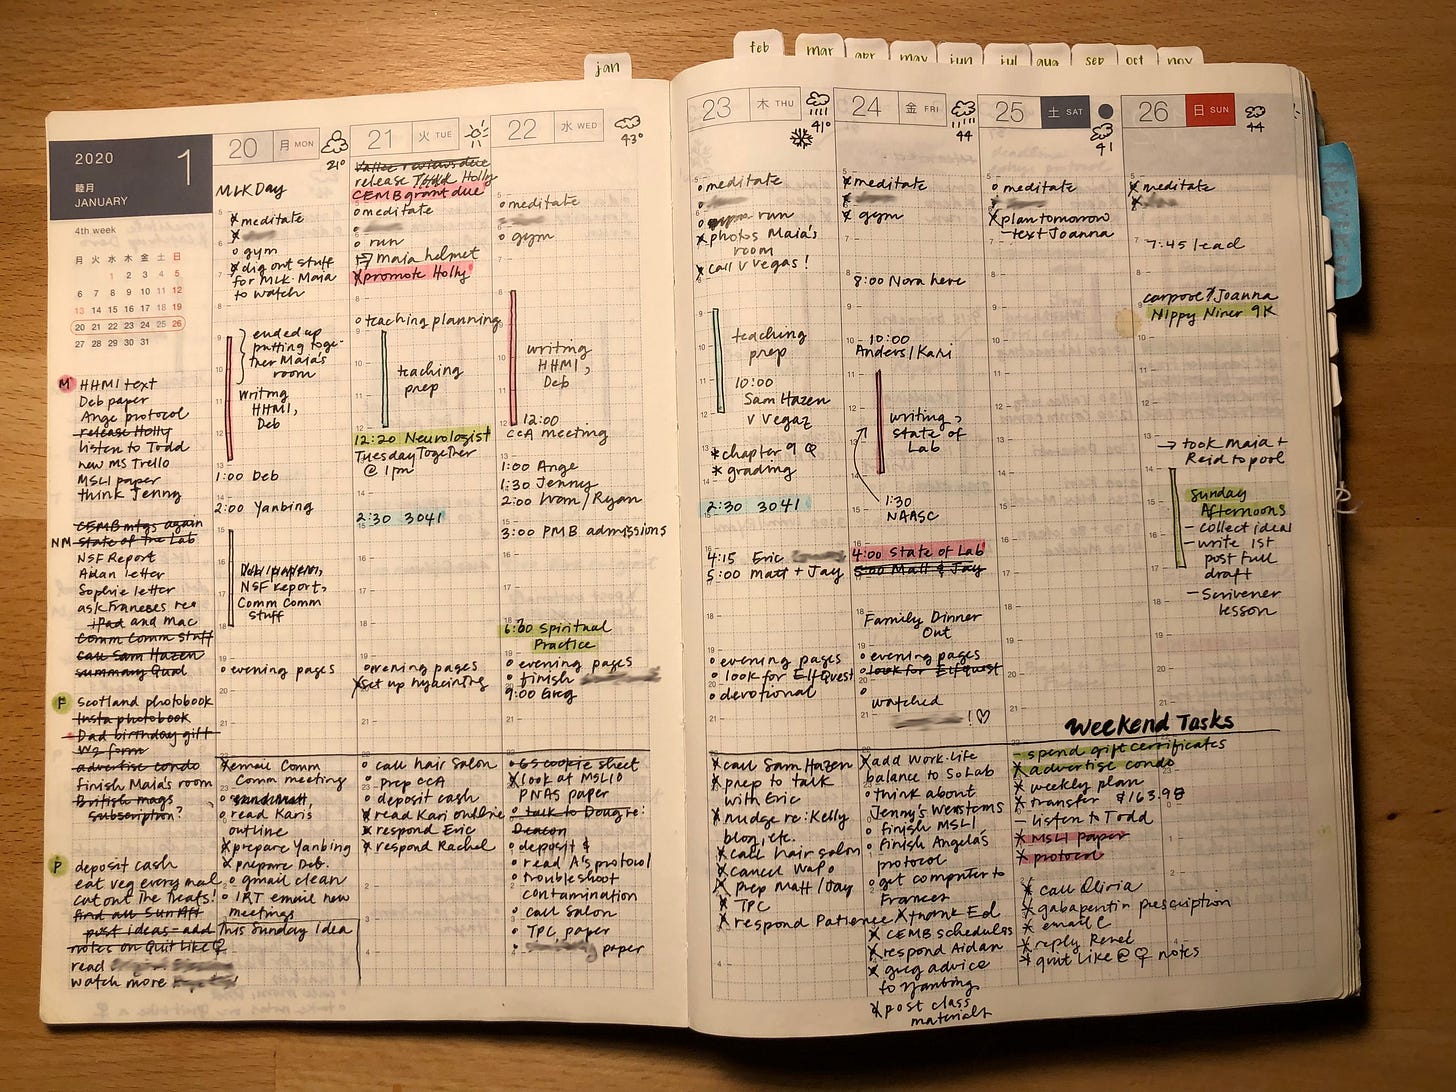 jan
feb
mar
apr
may
jun
jul
aug
sep
oct
nov
2020 1
睦月
JANUARY
4th week
月 火 水 木 金 土 日
1 2 3 4 5
6 7 8 9 10 11 12
13 14 15 16 17 18 19
20 21 22 23 24 25 26
27 28 29 30 31
M HHMI text
Deb paper
Ange protocol
release Holly
listen to Todd
new MS Trello
MSLI paper
think Jenny
CEMB mtgs again
NM State of the Lab
NSF Report
Aidan letter
Sophie letter
ask Frances re
iPad and Mac
Comm Comm Stuff
call Sam Hazen
summary Qual
F Scotland photobook
Insta photobook
Dad birthday gift
W2 form
advertise condo
finish Maia's room
British mags
subscription?
P deposit cash
eat veg every meal
cut out the treats!
find all Sun Aft
post ideas - add
notes on Quit Like
read
watch more
20 月 MON
21°
MLK Day
meditate
gym
dig out stuff
for MLK Maia
to watch
ended up
putting toge-
ther Maia's
room
writing
HHMI,
Deb
1:00 Deb
2:00 Yanbing
NSF report,
Comm Comm
stuff
evening pages
email Comm
Comm meeting
read Karis
outline
prepare Yanbing
prepare Deb.
gmail clean
IRT email new
meetings
This Sunday Idea
21 火 TUE
release Holly
CEMB grant due
meditate
run
maia helmet
promote Holly
teaching planning
teaching
prep
12:20 Neurologist
Tuesday Together
@ 1pm
2:30 3041
evening pages
set up hyacinths
call hair salon
prep CCA
deposit cash
read Kari outline
respond Eric
respond Rachel
22 水 WED
43°
meditate
gym
writing
HHMI,
Deb
12:00
CCA meeting
1:00 Ange
1:30 Jenny
2:00 Ivan/Ryan
3:00 PMB admissions
6:30 Spiritual
Practice
evening pages
finish
9:00 Greg
GS cookie sheet
look at MSL10
PNAS paper
talk to Doug re:
Deacon
deposit $
read A's protocol
troubleshoot
contamination
call salon
TPC paper
paper
23 木 THU
41°
meditate
run
photos Maia's
room
call V Vegas!
teaching
prep
10:00
Sam Hazen
V Vegaz
chapter 9 Q
grading
2:30 3041
4:15 Eric
5:00 Matt + Jay
evening pages
look for ElfQuest
devotional
call Sam Hazen
prep to talk
with Eric
nudge re: Kelly
blog, etc.
call hair salon
cancel WaPo
prep Matt/Jay
TPC
respond Patience
24 金 FRI
44
meditate
gym
8:00 Nora here
10:00
Anders/Kari
writing,
State of
Lab
1:30
NAASC
4:00 State of Lab
5:00 Matt & Jay
Family Dinner
Out
evening pages
look for ElfQuest
watched
!♡
add work-life
balance to SoLab
think about
Jenny's Westerns
finish MSLI
finish Angela's
protocol
get computer to
Frances
thank Ed
CEMB schedules
respond Aidan
greg advice
to Yanbing
post class
materials
25 土 SAT
41
meditate
plan tomorrow
- text Joanna
Weekend Tasks
- spend gift certificates
advertise condo
weekly plan
transfer $163.98
- listen to Todd
MSLI paper
protocol
call Olivia
gabapentin prescription
email C
reply René
quit like notes
26 日 SUN
44
meditate
7:45 lead
carpool/Joanna
Nippy Niner 9K
→ took Maia +
Reid to pool
Sunday
Afternoons
- collect ideas
- write 1st
post full
draft
- Scrivener
lesson